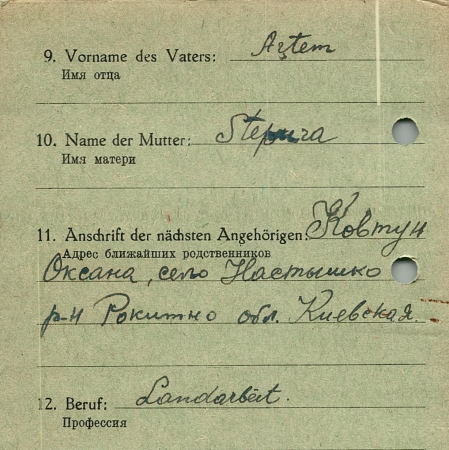 9. Vorname des Vaters: Artem
Имя отца
10. Name der Mutter:
Имя матери
11. Anschrift der nächsten Angehörigen: Ковтун
Адрес ближайших родственников
Оксана, село Настышко
р-н Рокитно обл. Киевская.
12. Beruf: Landarbeit.
Профессия